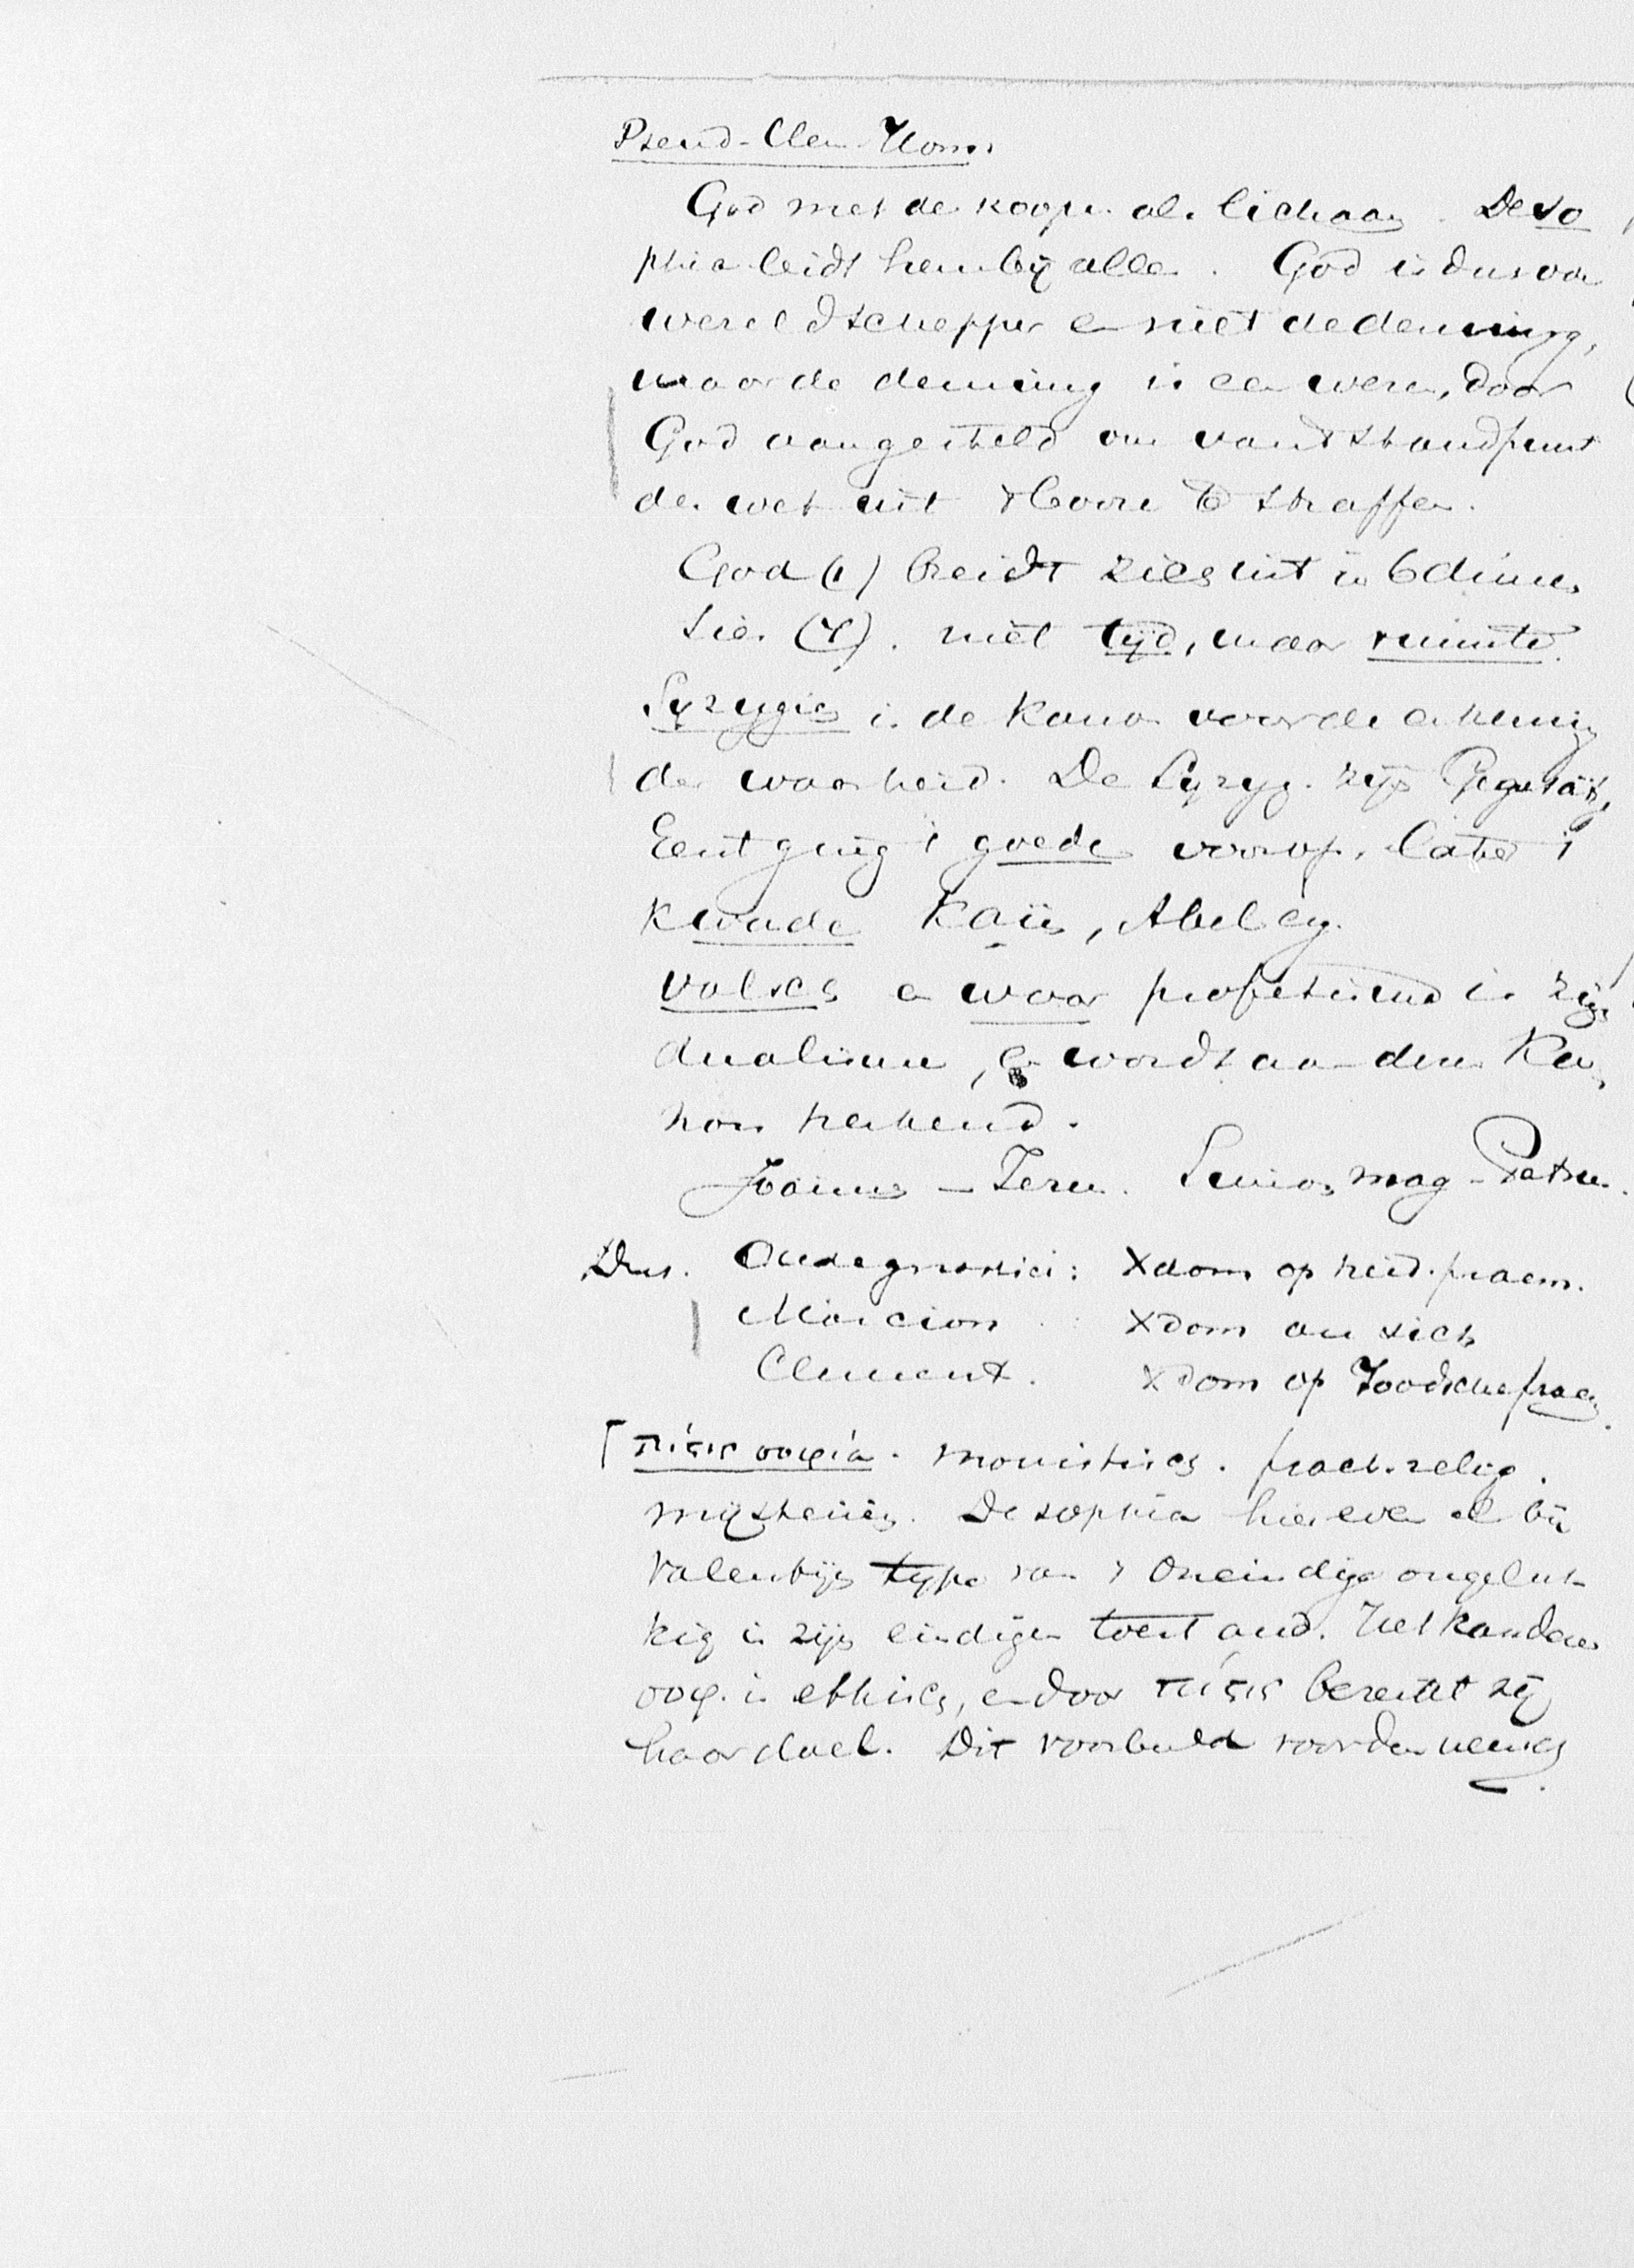 Pseud-Clem Hom.
God met de κοσμ. als lichaam. De so
phia leidt hem bij alles. God is dus
wereldschepper en niet de demiurg,
maar de demiurg is een wezen, door
God aangesteld om van 't standpunt
der wet uit 't booze te straffen.
God (1) breidt zich uit in 6 dimen
sies (7). niet tijd, maar ruimte.
Syzygien is de Kanon voor de erkenning
der waarheid. De Syzyg. zijn Gegensätz,
Eerst ging 't goede voorop, later 't
kwade Kaïn, Abel
valsch en waar profetisme is zijn
dualisme, en wordt aan dien Ka
non herkend.
Joannes - Jezus. Simon mag - Petrus.
Dus. Oude gnostici: Xdom op heid. praem.
Marcion Xdom an sich
Clement. Xdom op Joodsche praem.
πίστις σοφία. monistisch. pract. relig.
mysteriën. De sophia hier even als bij
Valentijn type van 't Oneindige ongeluk
kig in zijn eindigen toestand. Het karakter
σοφ. is ethisch, en door πίστις bereikt zij
haar doel. Dit voorbeeld voor den mensch.